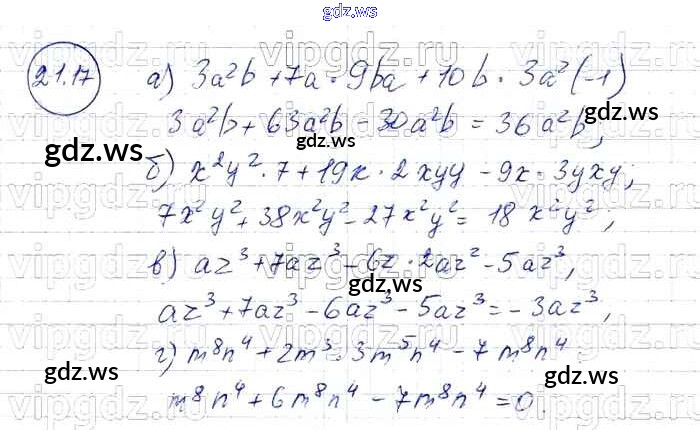 gdz.ws
21.17
а) 3a²b + 7a · 9ba + 10b · 3a²(-1)
3a²b + 63a²b - 30a²b = 36a²b,
gdz.ws
gdz.ws
б) x²y² · 7 + 19x · 2xyy - 9x · 3yxy;
7x²y² + 38x²y² - 27x²y² = 18x²y²;
в) az³ + 7az³ - 6z · 2az² - 5az³,
gdz.ws
gdz.ws
az³ + 7az³ - 6az³ - 5az³ = -3az³,
г) m⁸n⁴ + 2m³ · 3m⁵n⁴ - 7m⁸n⁴;
gdz.ws
gdz.ws
m⁸n⁴ + 6m⁸n⁴ - 7m⁸n⁴ = 0.
vipgdz.ru